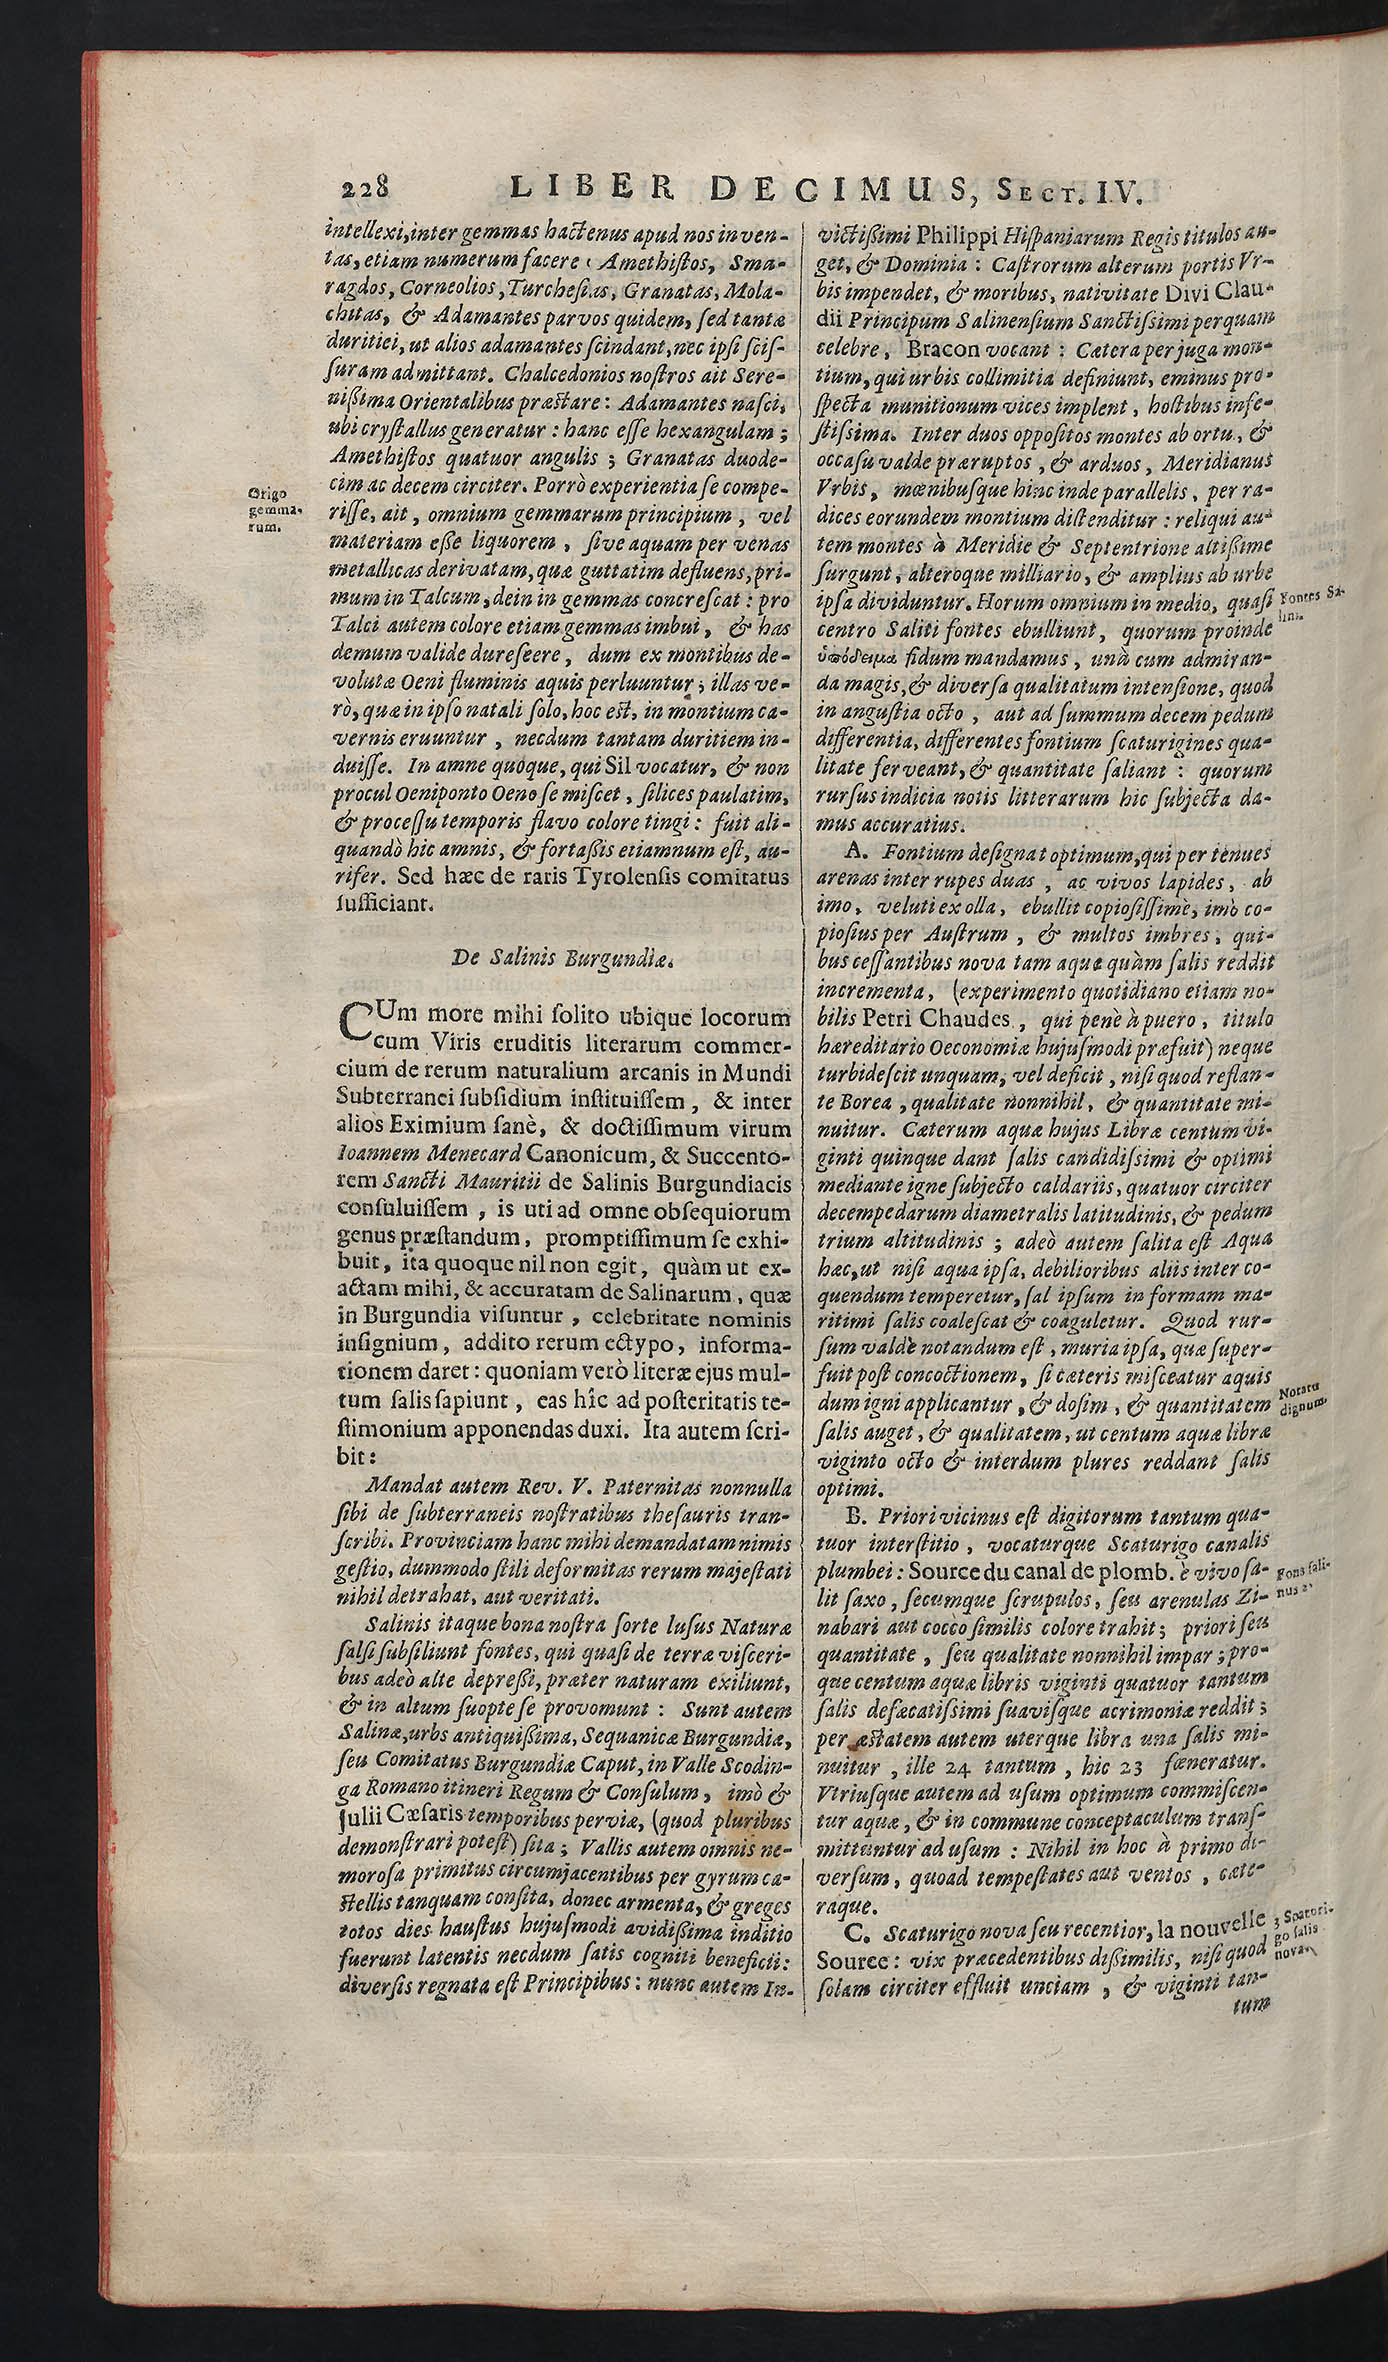 228 LIBER DECIMUS, SECT. IV.
intellexi, inter gemmas hactenus apud nos inven-
tas, etiam numerum facere : Amethiſtos, Sma-
ragdos, Corneolios, Turcheſias, Granatas, Mola-
chitas, & Adamantes parvos quidem, ſed tantæ
duritiei, ut alios adamantes ſcindant, nec ipſi ſciſ-
ſuram admittant. Chalcedonios noſtros ait Sere-
nißima Orientalibus præstare: Adamantes naſci,
ubi cryſtallus generatur : hanc eſſe hexangulam ;
Amethiſtos quatuor angulis ; Granatas duode-
cim ac decem circiter. Porrò experientia ſe compe-
riſſe, ait, omnium gemmarum principium, vel
materiam eße liquorem, ſive aquam per venas
metallicas derivatam, quæ guttatim defluens, pri-
mum in Talcum, dein in gemmas concreſcat : pro
Talci autem colore etiam gemmas imbui, & has
demum valide dureſeere, dum ex montibus de-
volutæ Oeni fluminis aquis perluuntur ; illas ve-
rò, quæ in ipſo natali ſolo, hoc est, in montium ca-
vernis eruuntur, necdum tantam duritiem in-
duiſſe. In amne quoque, qui Sil vocatur, & non
procul Oeniponto Oeno ſe miſcet, ſilices paulatim,
& proceſſu temporis flavo colore tingi : fuit ali-
quandò hic amnis, & fortaßis etiamnum eſt, au-
rifer. Sed hæc de raris Tyrolenſis comitatus
ſufficiant.
Origo
gemma-
rum.
De Salinis Burgundiæ.
CUm more mihi ſolito ubique locorum
cum Viris eruditis literarum commer-
cium de rerum naturalium arcanis in Mundi
Subterranei ſubſidium inſtituiſſem, & inter
alios Eximium ſanè, & doctiſſimum virum
Ioannem Menecard Canonicum, & Succento-
rem Sancti Mauritii de Salinis Burgundiacis
conſuluiſſem, is uti ad omne obſequiorum
genus præſtandum, promptiſſimum ſe exhi-
buit, ita quoque nil non egit, quàm ut ex-
actam mihi, & accuratam de Salinarum, quæ
in Burgundia viſuntur, celebritate nominis
inſignium, addito rerum ectypo, informa-
tionem daret : quoniam verò literæ ejus mul-
tum ſalis ſapiunt, eas hîc ad poſteritatis te-
ſtimonium apponendas duxi. Ita autem ſcri-
bit :
Mandat autem Rev. V. Paternitas nonnulla
ſibi de ſubterraneis noſtratibus theſauris tran-
ſcribi. Provinciam hanc mihi demandatam nimis
geſtio, dummodo ſtili deformitas rerum majeſtati
nihil detrahat, aut veritati.
Salinis itaque bona noſtra ſorte luſus Naturæ
ſalſi ſubſiliunt fontes, qui quaſi de terræ viſceri-
bus adeò alte depreßi, præter naturam exiliunt,
& in altum ſuopte ſe provomunt : Sunt autem
Salinæ, urbs antiquißima, Sequanicæ Burgundiæ,
ſeu Comitatus Burgundiæ Caput, in Valle Scodin-
ga Romano itineri Regum & Conſulum, imò &
Julii Cæſaris temporibus perviæ, (quod pluribus
demonſtrari poteſt) ſita ; Vallis autem omnis ne-
moroſa primitus circumjacentibus per gyrum ca-
ſtellis tanquam conſita, donec armenta, & greges
totos dies hauſtus hujuſmodi avidißima inditio
fuerunt latentis necdum ſatis cogniti beneficii :
diverſis regnata eſt Principibus : nunc autem In-
victißimi Philippi Hiſpaniarum Regis titulos au-
get, & Dominia : Caſtrorum alterum portis Vr-
bis impendet, & moribus, nativitate Divi Clau-
dii Principum Salinenſium Sanctiſſimi perquam
celebre, Bracon vocant : Cætera per juga mon-
tium, qui urbis collimitia definiunt, eminus pro-
ſpecta munitionum vices implent, hoſtibus infe-
ſtiſſima. Inter duos oppoſitos montes ab ortu, &
occaſu valde præruptos, & arduos, Meridianus
Vrbis, mœnibuſque hinc inde parallelis, per ra-
dices eorundem montium diſtenditur : reliqui au-
tem montes à Meridie & Septentrione altißime
ſurgunt, alteroque milliario, & amplius ab urbe
ipſa dividuntur. Horum omnium in medio, quaſi
centro Saliti fontes ebulliunt, quorum proinde
ὑπόδειμα fidum mandamus, unà cum admiran-
da magis, & diverſa qualitatum intenſione, quod
in anguſtia octo, aut ad ſummum decem pedum
differentia, differentes fontium ſcaturigines qua-
litate ferveant, & quantitate ſaliant : quorum
rurſus indicia notis litterarum hic ſubjecta da-
mus accuratius.
Fontes Sa-
lini.
A. Fontium deſignat optimum, qui per tenues
arenas inter rupes duas, ac vivos lapides, ab
imo, veluti ex olla, ebullit copioſiſſimè, imò co-
pioſius per Auſtrum, & multos imbres, qui-
bus ceſſantibus nova tam aquæ quàm ſalis reddit
incrementa, (experimento quotidiano etiam no-
bilis Petri Chaudes, qui penè à puero, titulo
hæreditario Oeconomiæ hujuſmodi præfuit) neque
turbideſcit unquam, vel deficit, niſi quod reflan-
te Borea, qualitate nonnihil, & quantitate mi-
nuitur. Cæterum aquæ hujus Libræ centum vi-
ginti quinque dant ſalis candidiſsimi & optimi
mediante igne ſubjecto caldariis, quatuor circiter
decempedarum diametralis latitudinis, & pedum
trium altitudinis ; adeò autem ſalita eſt Aqua
hæc, ut niſi aqua ipſa, debilioribus aliis inter co-
quendum temperetur, ſal ipſum in formam ma-
ritimi ſalis coaleſcat & coaguletur. Quod rur-
ſum valdè notandum eſt, muria ipſa, quæ ſuper-
fuit poſt concoctionem, ſi cæteris miſceatur aquis
dum igni applicantur, & doſim, & quantitatem
ſalis auget, & qualitatem, ut centum aquæ libræ
viginto octo & interdum plures reddant ſalis
optimi.
Notatu
dignum.
B. Priori vicinus eſt digitorum tantum qua-
tuor interſtitio, vocaturque Scaturigo canalis
plumbei : Source du canal de plomb. è vivo ſa-
lit ſaxo, ſecumque ſcrupulos, ſeu arenulas Zi-
nabari aut cocco ſimilis colore trahit ; priori ſeu
quantitate, ſeu qualitate nonnihil impar ; pro-
que centum aquæ libris viginti quatuor tantum
ſalis defæcatiſsimi ſuaviſque acrimoniæ reddit ;
per æstatem autem uterque libra una ſalis mi-
nuitur, ille 24 tantum, hic 23 fœneratur.
Vtriuſque autem ad uſum optimum commiſcen-
tur aquæ, & in commune conceptaculum tranſ-
mittuntur ad uſum : Nihil in hoc à primo di-
verſum, quoad tempeſtates aut ventos, cæte-
raque.
Fons ſali-
nus 2.
C. Scaturigo nova ſeu recentior, la nouvelle
Source : vix præcedentibus dißimilis, niſi quod
ſolam circiter effluit unciam, & viginti tan-
tum
3 Scaturi-
go ſalis
nova.